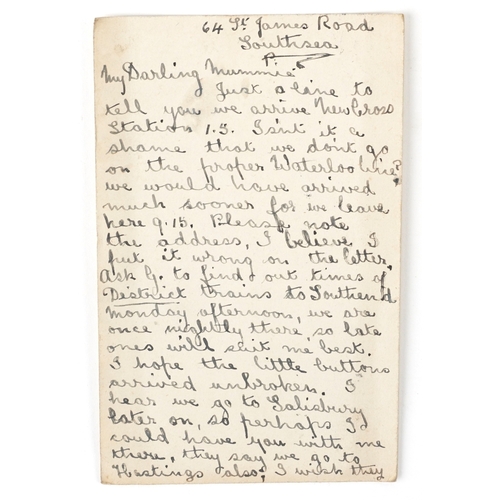 64 St. James Road
Southsea
My Darling Mummie.
Just a line to
tell you we arrive New Cross
Station 1.3. Isn't it a
shame that we don't go
on the proper Waterloo line?
we would have arrived
much sooner for we leave
here 9.15. Please note
the address, I believe I
put it wrong on the letter.
Ask G. to find out times of
District trains to Southend
monday afternoon, we are
once nightly there so late
ones will suit me best.
I hope the little buttons
arrived unbroken. I
hear we go to Salisbury
later on, so perhaps I
could have you with me
there, they say we go to
Hastings also, I wish they